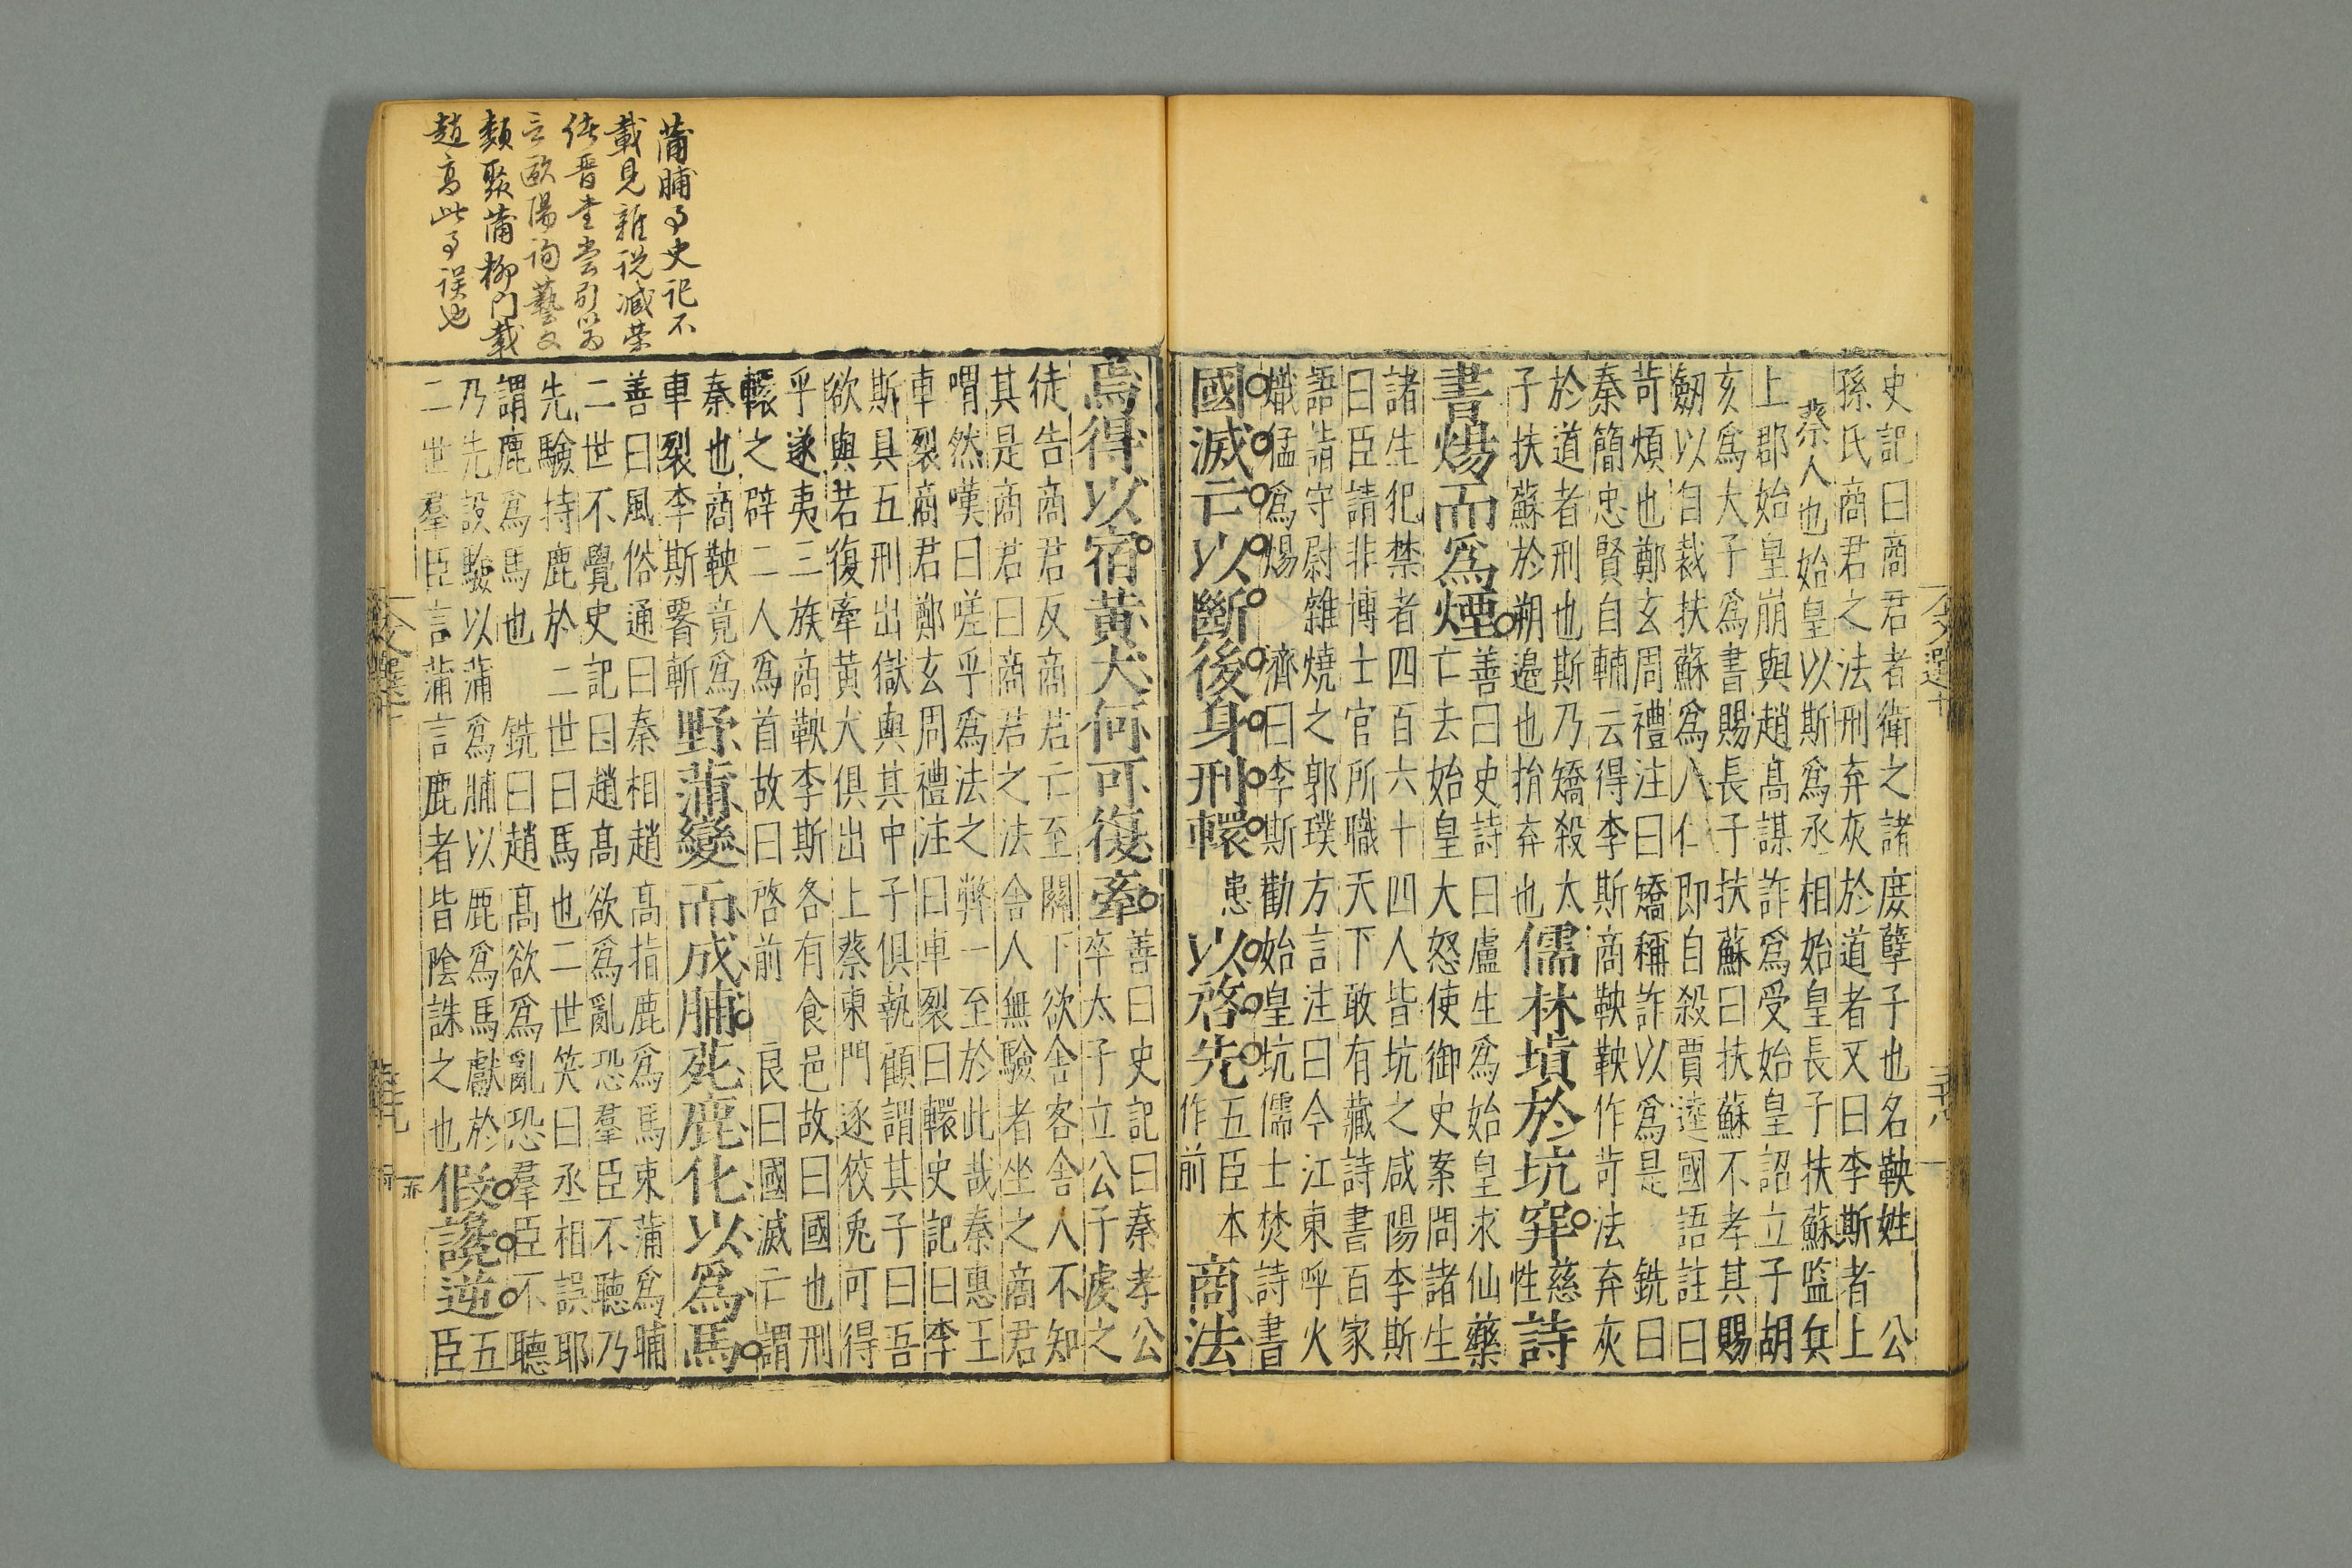 史記曰商君者衛之諸庶孽子也名鞅姓公
孫氏商君之法刑弃灰於道者又曰李斯者上
蔡人也始皇以斯爲丞相始皇長子扶蘇監兵
上郡始皇崩與趙髙謀詐爲受始皇詔立子胡
亥爲大子爲書賜長子扶蘇曰扶蘇不孝其賜
劒以自裁扶蘇爲人仁即自殺賈逵國語註曰
苛煩也鄭玄周禮注曰矯稱詐以爲是 銑曰
秦簡忠賢自輔云得李斯商鞅鞅作苛法弃灰
於道者刑也斯乃矯殺太
子扶蘇於朔邉也捎弃也
儒林墳於坑穽慈性詩
書煬而爲煙
善曰史詩曰盧生爲始皇求仙藥
亡去始皇大怒使御史案問諸生
諸生犯禁者四百六十四人皆坑之咸陽李斯
曰臣請非博士官所職天下敢有藏詩書百家
語請守尉雜燒之郭璞方言注曰今江東呼火
熾猛爲煬 濟曰李斯勸始皇坑儒士焚詩書
國滅亡以斷後身刑轘患以啓先五臣本作前商法
焉得以宿黄犬何可復牽
善曰史記曰秦孝公
卒太子立公子虔之
徒告商君反商君亡至關下欲舍客舍人不知
其是商君曰商君之法舍人無驗者坐之商君
喟然嘆曰嗟乎爲法之弊一至於此哉秦惠王
車裂商君鄭玄周禮注曰車裂曰轘史記曰李
斯具五刑出獄與其中子俱執顧謂其子曰吾
欲與若復牽黄犬俱出上蔡東門逐狡兎可得
乎遂夷三族商鞅李斯各有食邑故曰國也刑
轘之辟二人爲首故曰啓前 良曰國滅亡謂
秦也商鞅竟爲
車裂李斯署斬
野蒲變而成脯死鹿化以爲馬
善曰風俗通曰秦相趙髙指鹿爲馬束蒲爲脯
二世不覺史記曰趙髙欲爲亂恐羣臣不聽乃
先驗持鹿於二世曰馬也二世笑曰丞相誤耶
謂鹿爲馬也 銑曰趙髙欲爲亂恐羣臣不聽
乃先設驗以蒲爲脯以鹿爲馬獻於
二世羣臣言蒲言鹿者皆陰誅之也
假讒逆五臣
蒲脯事史記不
載見雜説臧榮
緒晋書嘗引以爲
言歐陽詢藝文
類聚蒲柳門載
趙高此事誤也